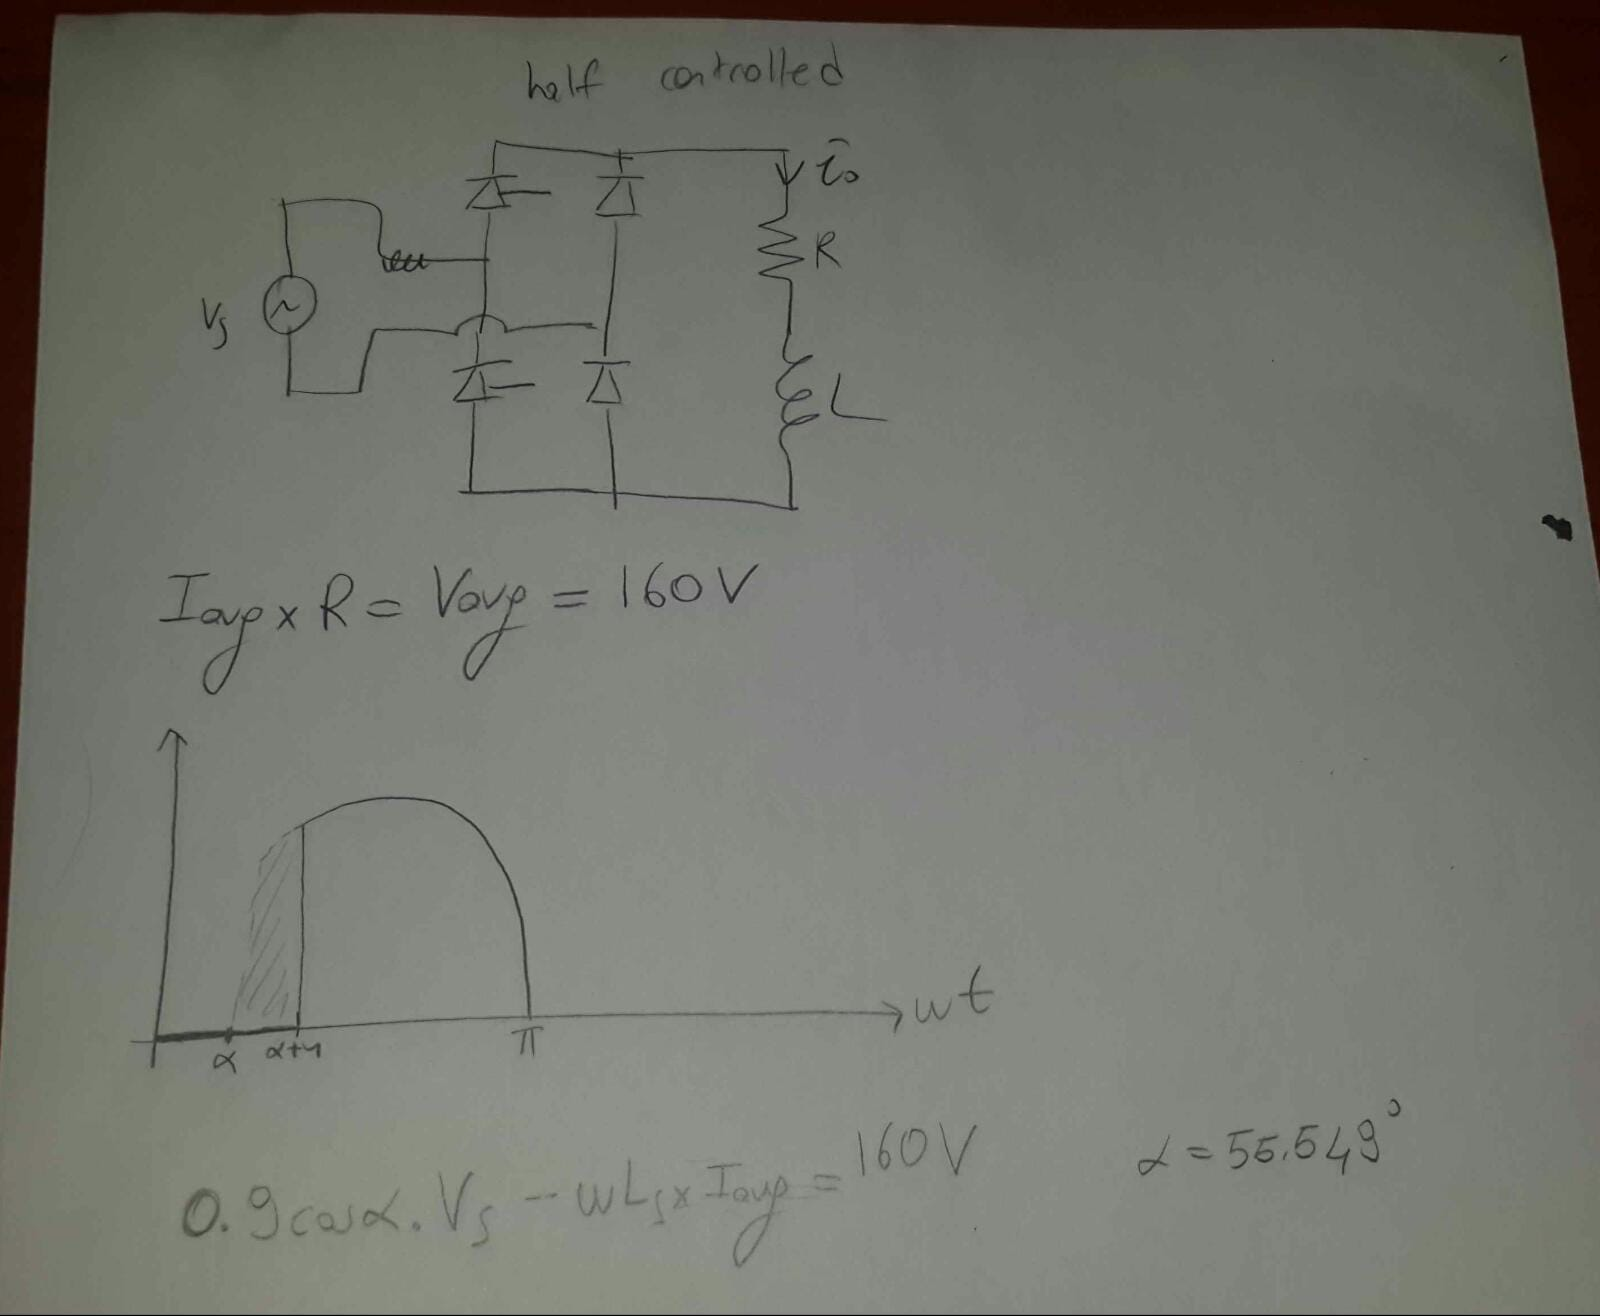 half controlled
i₀
R
Vs
L
Iavg x R = Vavg = 160V
α α+u π wt
0.9cosα.Vs - wLs x Iavg = 160V α = 55.549°